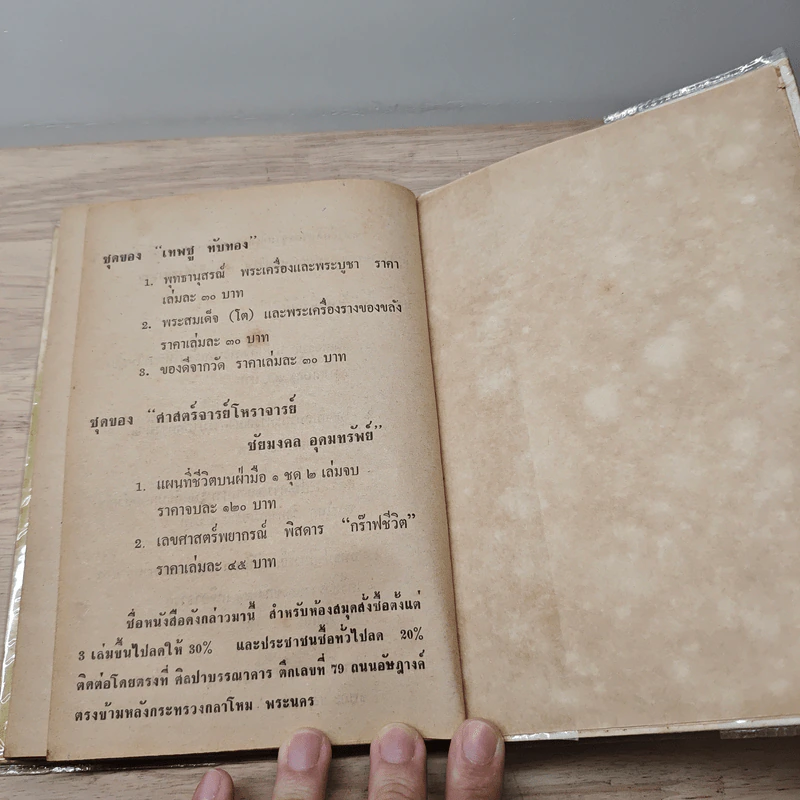 ชุดของ "เทพชู ทับทอง"
1. พุทธานุสรณ์ พระเครื่องและพระบูชา ราคา
เล่มละ ๓๐ บาท
2. พระสมเด็จ (โต) และพระเครื่องรางของขลัง
ราคาเล่มละ ๓๐ บาท
3. ของดีจากวัด ราคาเล่มละ ๓๐ บาท
ชุดของ "ศาสตร์จารย์โหราจารย์
ชัยมงคล อุดมทรัพย์"
1. แผนที่ชีวิตบนฝ่ามือ ๑ ชุด ๒ เล่มจบ
ราคาจบละ ๑๒๐ บาท
2. เลขศาสตร์พยากรณ์ พิสดาร "กร๊าฟชีวิต"
ราคาเล่มละ ๔๕ บาท
ชื่อหนังสือดังกล่าวมานี้ สำหรับห้องสมุดสั่งซื้อตั้งแต่
3 เล่มขึ้นไปลดให้ 30% และประชาชนซื้อทั่วไปลด 20%
ติดต่อโดยตรงที่ ศิลปาบรรณาคาร ตึกเลขที่ 79 ถนนอัษฎางค์
ตรงข้ามหลังกระทรวงกลาโหม พระนคร